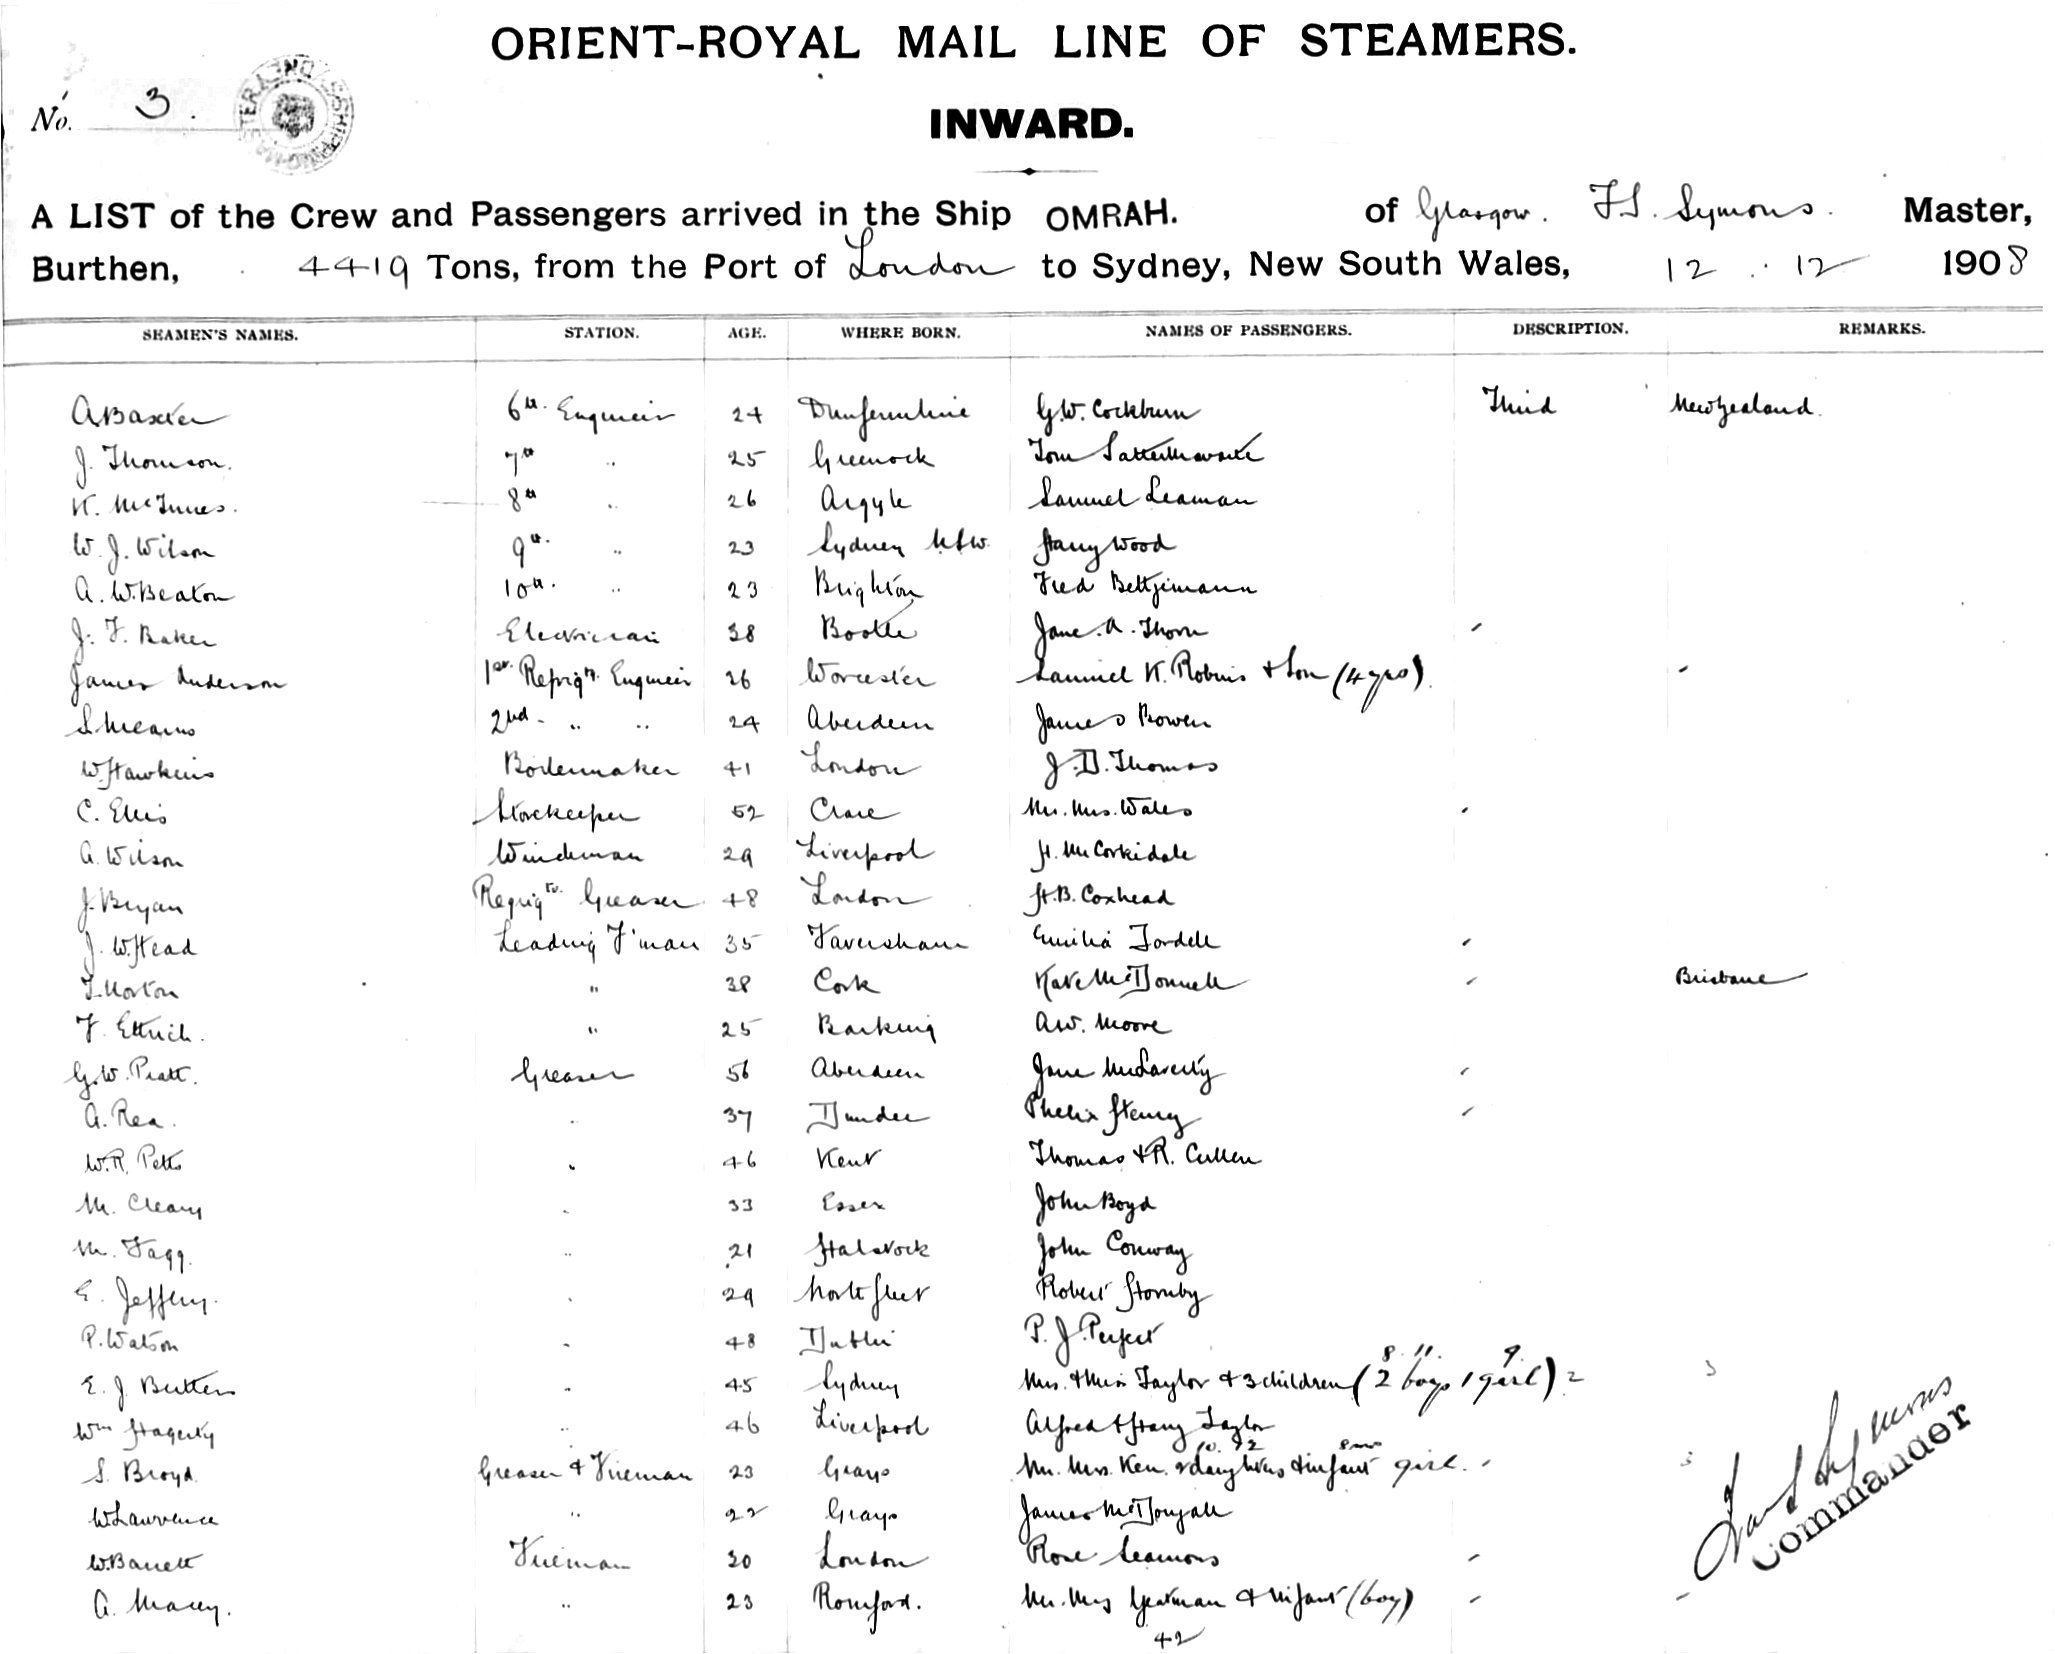 ORIENT-ROYAL MAIL LINE OF STEAMERS.
No. 3.
INWARD.
A LIST of the Crew and Passengers arrived in the Ship OMRAH. of Glasgow. F.S. Symons. Master,
Burthen, 4419 Tons, from the Port of London to Sydney, New South Wales, 12 . 12 1908
SEAMEN'S NAMES. STATION. AGE. WHERE BORN. NAMES OF PASSENGERS. DESCRIPTION. REMARKS.
A Baxter 6th. Engineer 24 Dunfermline G.W. Cockburn Third New Zealand.
J. Thomson. 7th " 25 Greenock Tom Satterthwaite
K. McInnes. 8th " 26 Argyle Samuel Leaman
W. J. Wilson 9th. " 23 Sydney N.S.W. Harry Wood
A. W. Beaton 10th. " 23 Brighton Fred Bettjemann
J. F. Baker Electrician 38 Bootle Jane. A. Thorn
James Anderson 1st. Refrigr. Engineer 26 Worcester Samuel K. Robins & Son (4 yrs)
S. Mearns 2nd. " " 24 Aberdeen James Bowen
W. Hawkins Boilermaker 41 London J. D. Thomas
C. Ellis Storekeeper 52 Clare Mr. Mrs. Wales
A. Wilson Windman 29 Liverpool H. McCorkidale
J. Bryan Greaser 48 London H.B. Coxhead
J. W. Head Leading F'man 35 Faversham Emilia Tordell
T. Norton " 38 Cork Kate McDonnell Brisbane
F. Ettrich. " 25 Barking A.W. Moore
G.W. Pratt. Greaser 56 Aberdeen Jane McLaverty
A. Rea. " 37 Dundee Phelix Henry
W.R. Petts " 46 Kent Thomas & R. Cullen
M. Cleary " 33 Essex John Boyd
M. Fagg. " 21 Halstock John Conway
E. Jeffery. " 29 Northfleet Robert Hornby
P. Watson " 48 Dublin P. J. Perfect
8. 11. 9.
E. J. Butters " 45 Sydney Mrs. & Miss Taylor & 3 children (2 boys 1 girl) 2 3
Wm Hagerty " 46 Liverpool Alfred & Harry Taylor
S. Broyd Greaser & Fireman 23 Grays Mr. Mrs. Ken. 2 daughters & infant girl. 3
W Lawrence " 22 Grays James McDougall
W. Barrett Fireman 30 London Rose Seamons
A. Macey. " 23 Romford. Mr. Mrs Yeatman & Infant (boy)
42
Symons
Commander